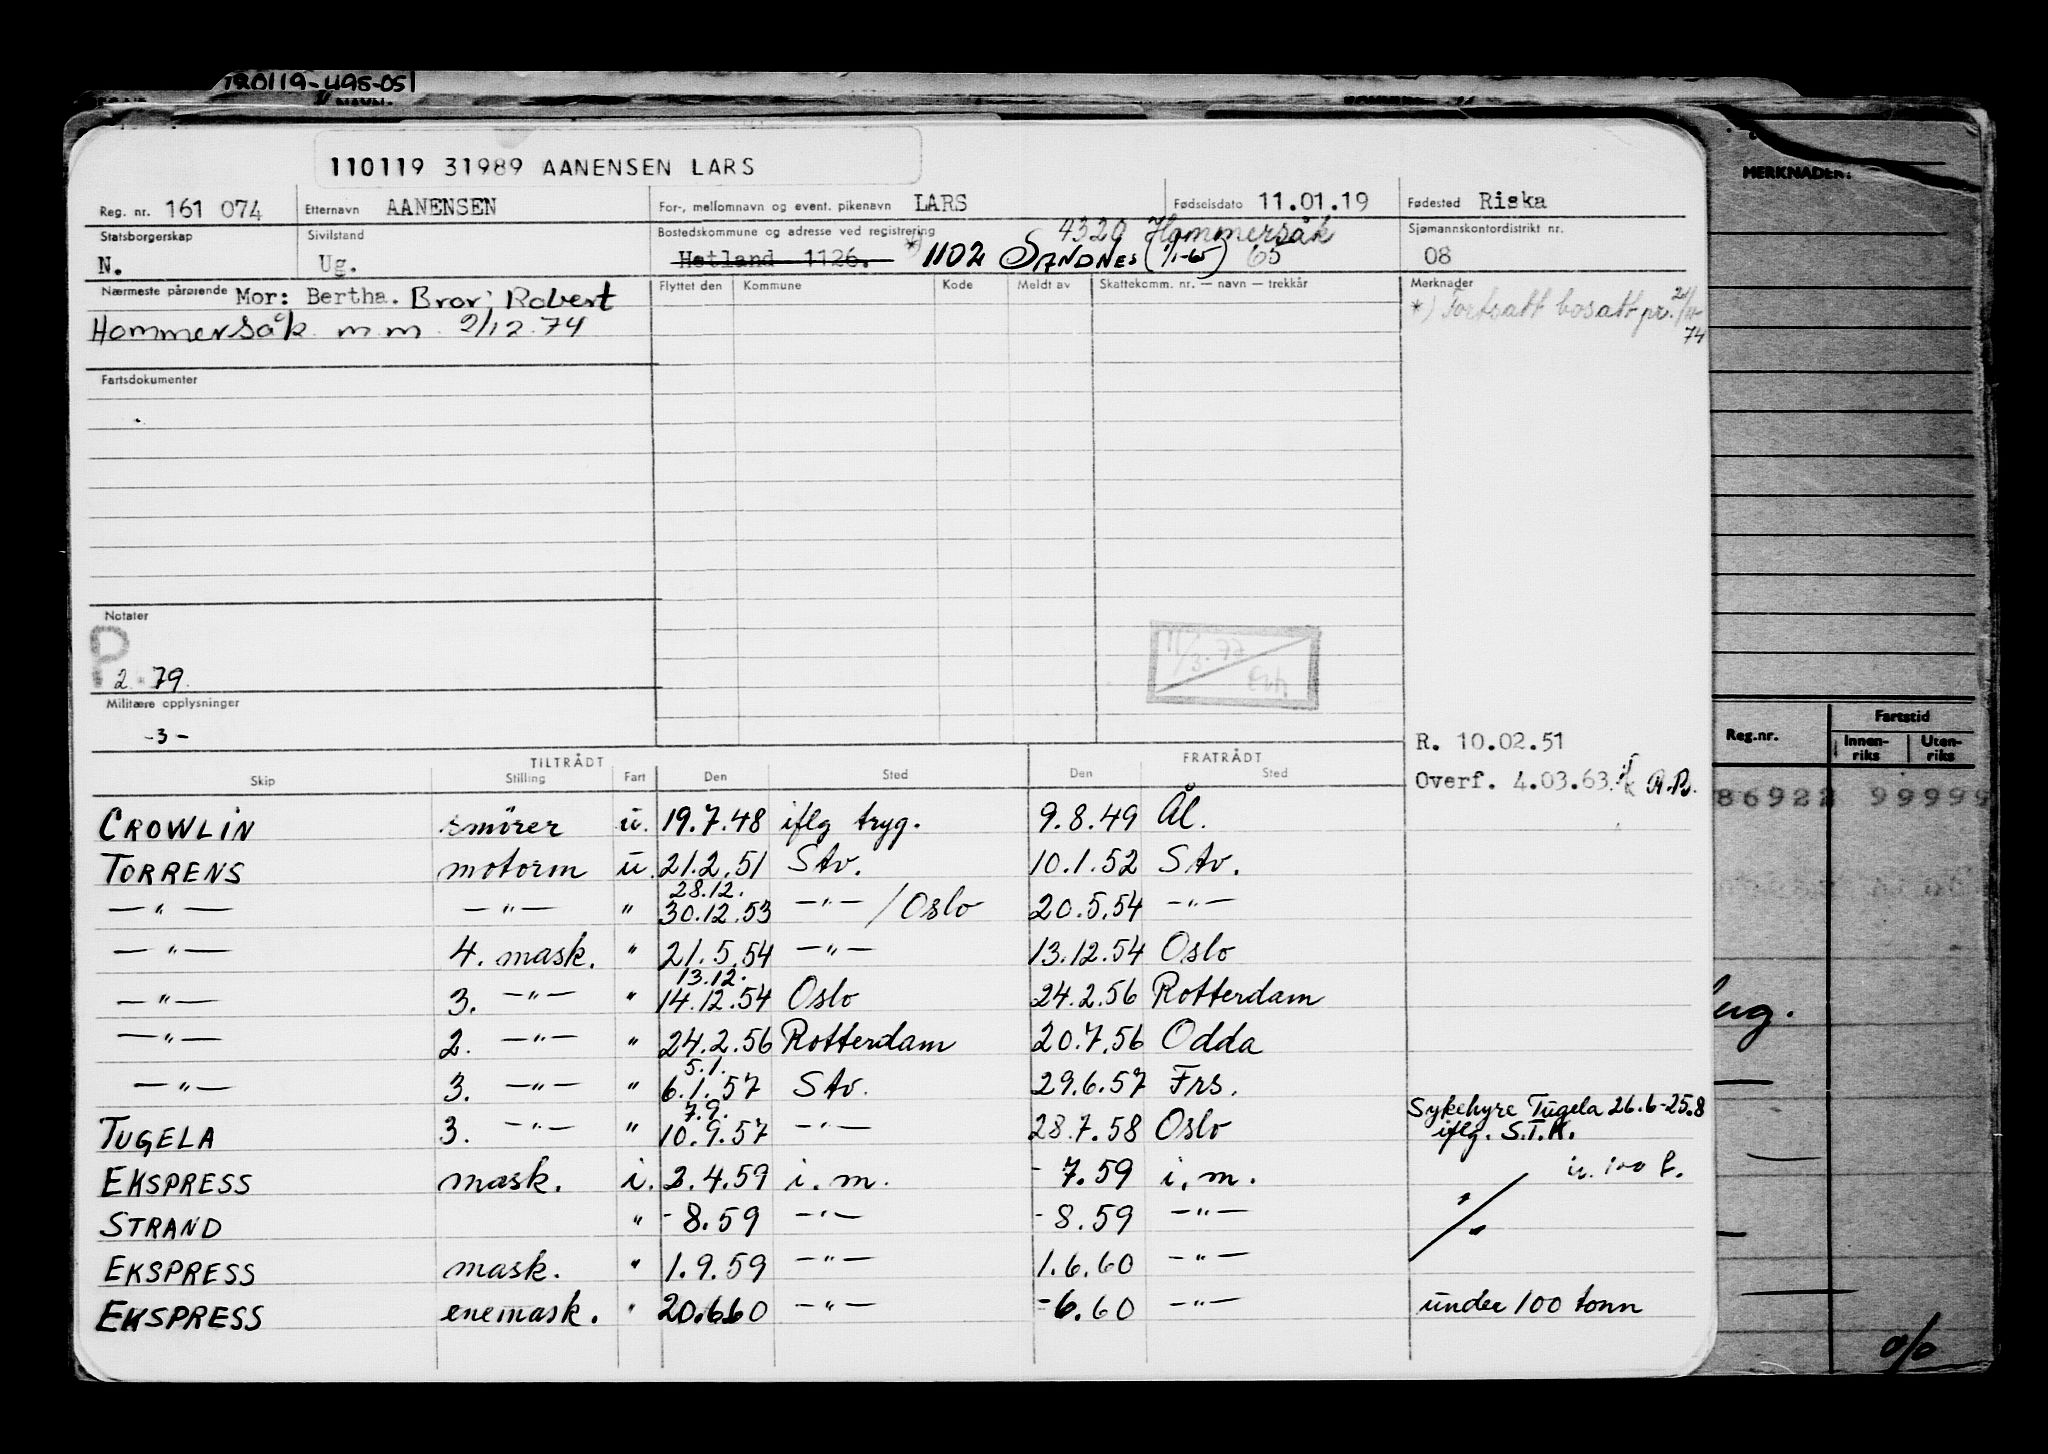 120119-495-051
NAVN.
110119 31989 AANENSEN LARS
MERKNADER:
Reg. nr. 161 074 Etternavn AANENSEN For-, mellomnavn og event. pikenavn LARS Fødselsdato 11.01.19 Fødested Riska
Statsborgerskap Sivilstand Bostedskommune og adresse ved registrering 4320 Hommersåk Sjømannskontordistrikt nr.
N. Ug. Hetland 1126. *) 1102 SANDNES (1/1-65) 65 08
Nærmeste pårørende Mor: Bertha. Bror: Robert Flyttet den Kommune Kode Meldt av Skattekomm. nr. — navn — trekkår Merknader
Hommersåk m m 2/12.74 *) Fortsatt bosatt pr.
74
Fartsdokumenter
Notater
P
2.-79.
11/3.77
Militære opplysninger
-3-
R. 10.02.51
Reg.nr. Fartstid
Innen-riks Uten-riks
TILTRÅDT FRATRÅDT
Skip Stilling Fart Den Sted Den Sted
Overf. 4.03.63. R.Ps.
86922 99999
CROWLIN smörer u. 19.7.48 iflg tryg. 9.8.49 Ål.
TORRENS motorm u. 21.2.51 Stv. 10.1.52 Stv.
28.12.
—"— —"— " 30.12.53 —"— / Oslo 20.5.54 —"—
—"— 4. mask. " 21.5.54 —"— 13.12.54 Oslo
13.12.
—"— 3. —"— " 14.12.54 Oslo 24.2.56 Rotterdam
—"— 2. —"— " 24.2.56 Rotterdam 20.7.56 Odda
5.1.
—"— 3. —"— " 6.1.57 Stv. 29.6.57 Frs.
7.9. Sykehyre Tugela 26.6-25.8
TUGELA 3. —"— " 10.9.57 —"— 28.7.58 Oslo iflg. S.T.K.
EKSPRESS mask. i. 2.4.59 i. m. - 7.59 i. m. u. 100 t.
STRAND " - 8.59 —"— - 8.59 —"— "
EKSPRESS mask. " 1.9.59 —"— 1.6.60 —"—
EKSPRESS enemask. " 20.6.60 —"— - 6.60 —"— under 100 tonn